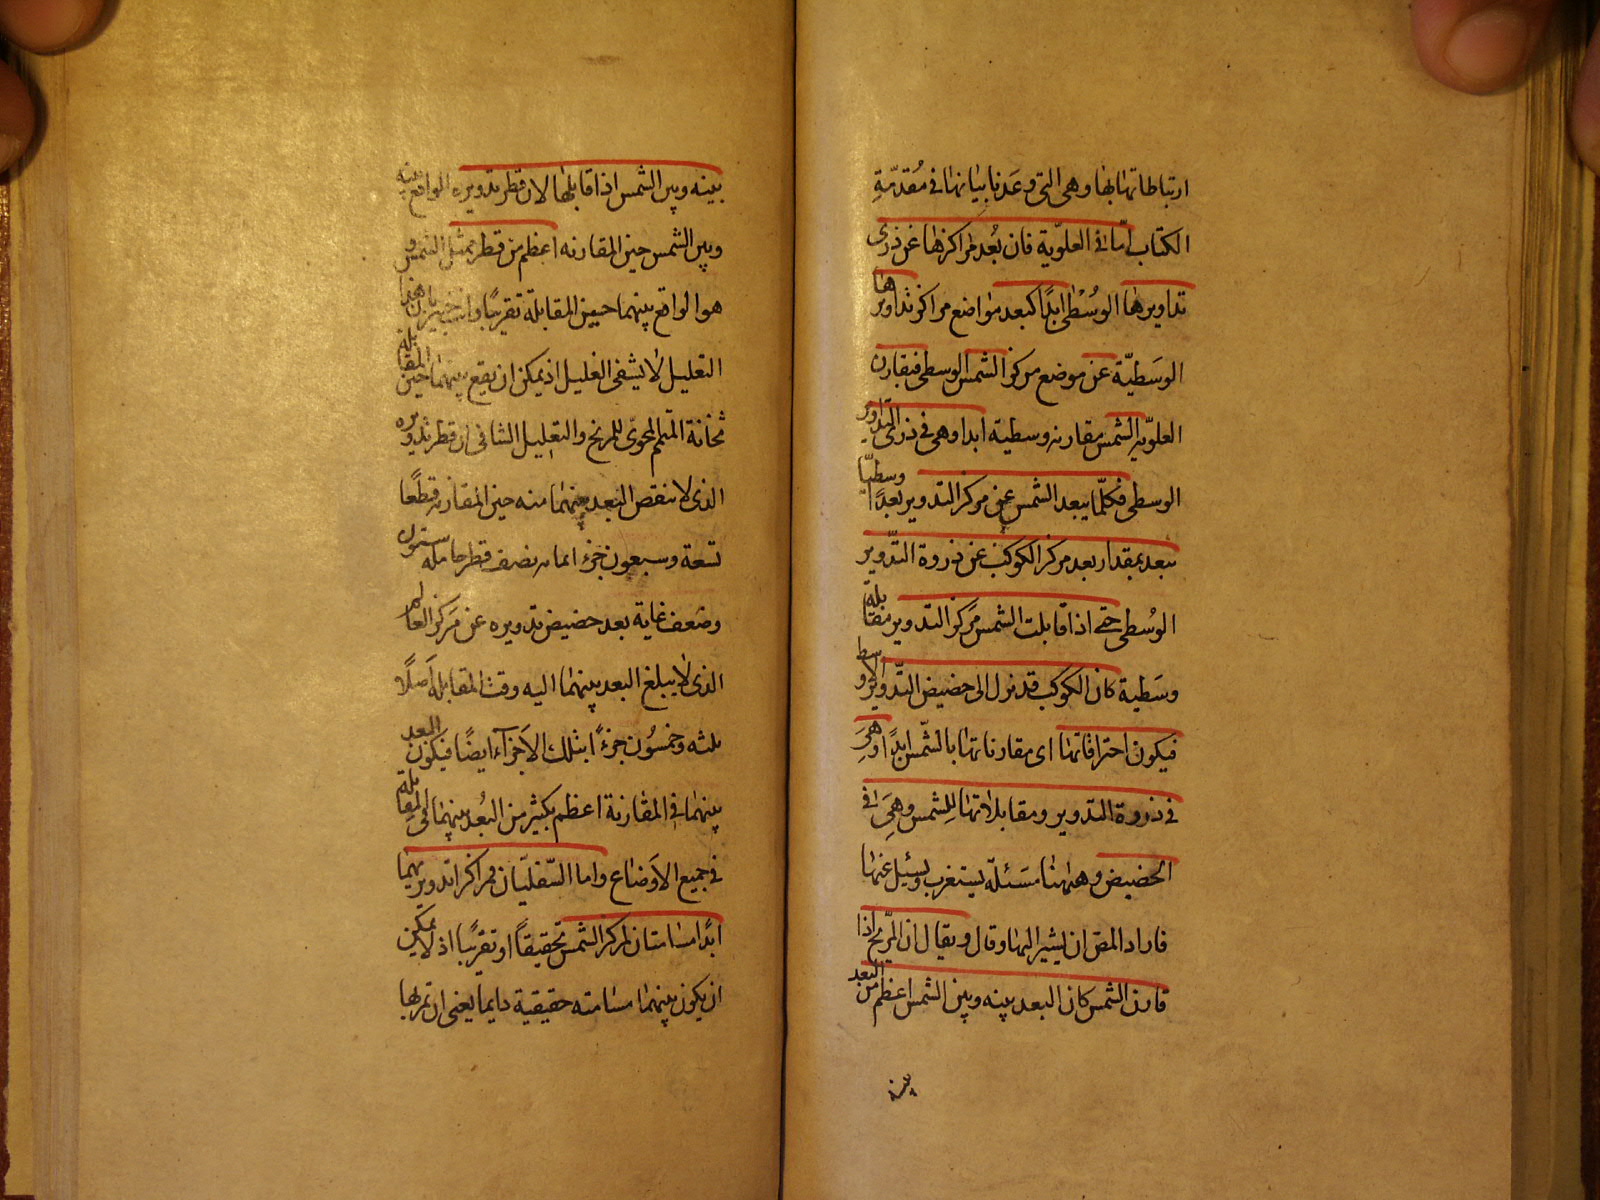 ارتباطاتها بها وهى التى وعدنا بيانها فى مُقدّمةِ
الكتاب امّا فى العلوّية فان بُعد مراكزها عن ذرى
تداويرها الوُسْطى ابدًا كبعد مواضع مراكز تداويرها
الوَسَطيّة عن موضع مركز الشمس الوسطى فيقارن
العلويّة الشمس مقارنه وسطية ابدا وهى فى ذرى التداوير
الوسطى فكلّما يبعد الشمس عن مركز التدوير بعدًا وسطيّا
يبعد بمقدار بعد مركز الكوكب عن ذروة التّدوير
الوُسطى حتى اذا قابلت الشمس مركز التدوير مقابلة
وسَطية كان الكوكب قد نزل الى حضيض التّدوير الاوسط
فيكون احتراقاتها اى مقارناتها بالشّمس ابدًا وهىَ
فى ذروة التدوير ومقابلاتها للِشمس وهىَ فى
الحضيض وههنا مسَئلة يستغرب ويسئل عنها
فاراد المص ان يشير اليها وقال ويقال ان المرّيخ اذا
قارن الشمس كان البعد بينه وبين الشمس اعظم من البعد
بينه وبين الشمس اذا قابلها لان قطر تدويره الواقع بينه
وبين الشمس حين المقارنه اعظم من قطر ممثل الشمس و
هو الواقع بينهما حين المقابلة تقريبًا وانت خبير بان هذا
التعليل لا يشفى الغليل اذ يمكن ان يقع بينهما حين المقابلة
ثخانة المتمم المحوى للمريخ والتعليل الشافى ان قطر تدويره
الذى لا ينقص البعد بينهما منه حين المقارنه قطعًا
تسعة وسبعون جزء ايما به نصف قطر حامله ستون
وضعف غاية بعد حضيض تدويره عن مركز العالم
الذى لا يبلغ البعد بينهما اليه وقت المقابلة اَصلًا
ثلثه وخمسُون جزءً ابتلك الاَجزآء ايضًا فيكون البعد
بينهما فى المقارنة اعظم بكثير من البُعد بينهما فى المقابلة
فى جميع الاَوضاع واما السّفليّان فمراكز تدويريهما
ابدًا مسامتان لمركز الشمس تحقيقاً او تقريبًا اذ لا يمكن
ان يكون بينهما مسامته حقيقية دايما يعنى ان تمر بها